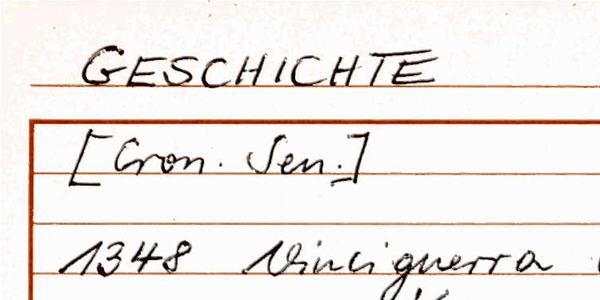 GESCHICHTE
[Cron. Sen.]
1348 Vinciguerra